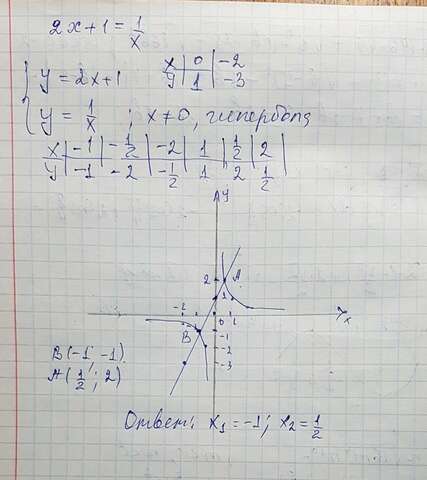 2x+1 = 1/x
{ y = 2x+1
x | 0 | -2
y | 1 | -3
{ y = 1/x ; x≠0, гипербола
x | -1 | -1/2 | -2 | 1 | 1/2 | 2
y | -1 | -2 | -1/2 | 1 | 2 | 1/2
y
2 A
1
-2 0 1 x
B -1
-2
-3
B(-1; -1)
A(1/2; 2)
Ответ: x₁ = -1; x₂ = 1/2